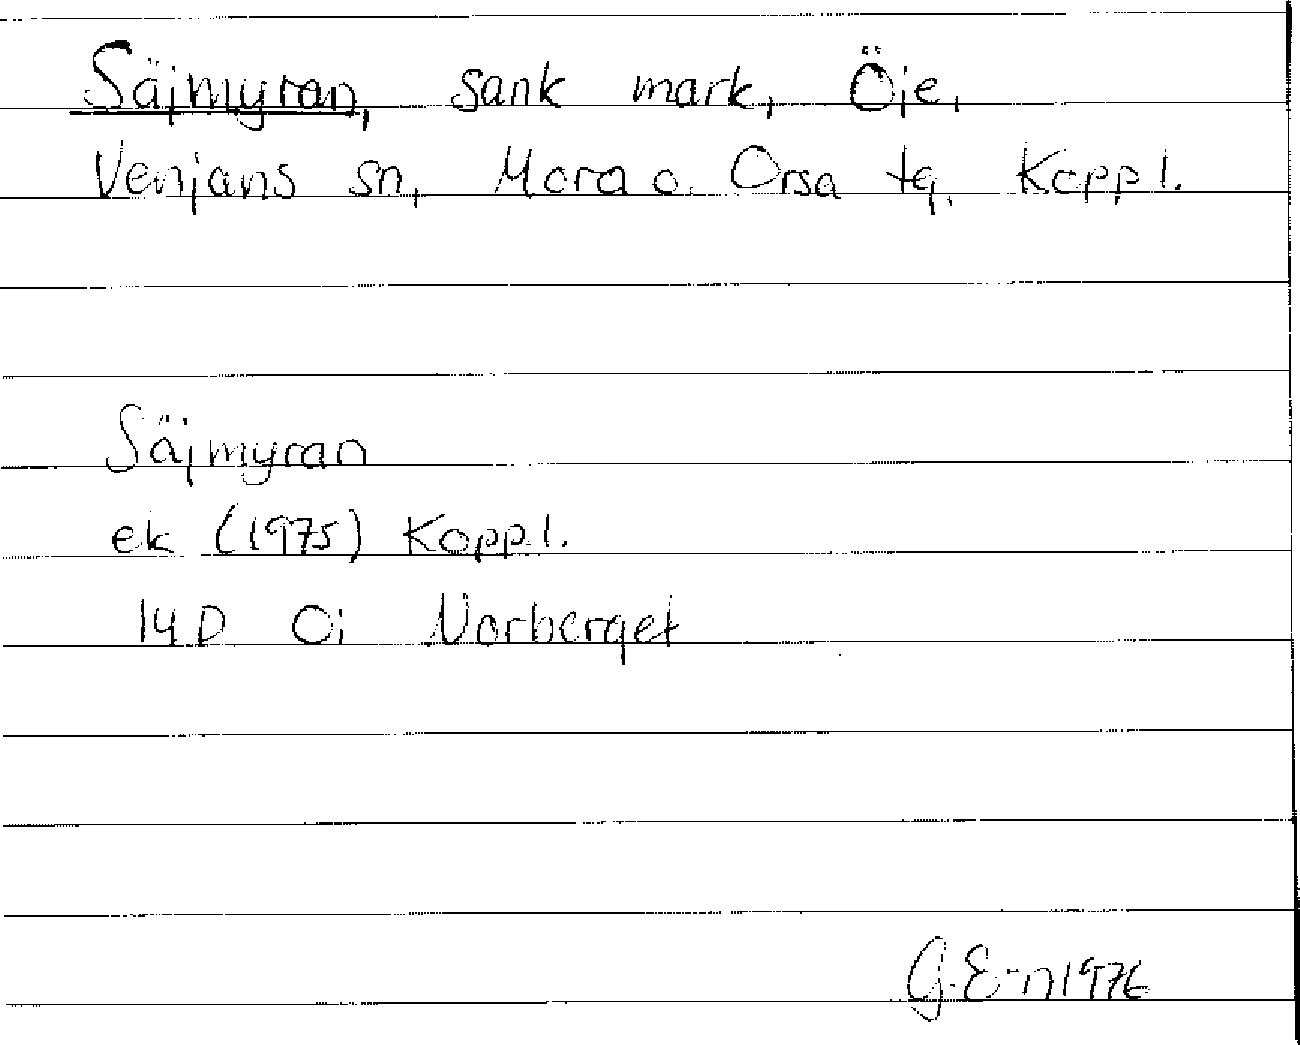 Säjmyran, sank mark, Öje,
Venjans sn, Mora o. Orsa tg, Koppl.
Säjmyran
ek (1975) Koppl.
14D 0i Norberget
G.E-n 1976